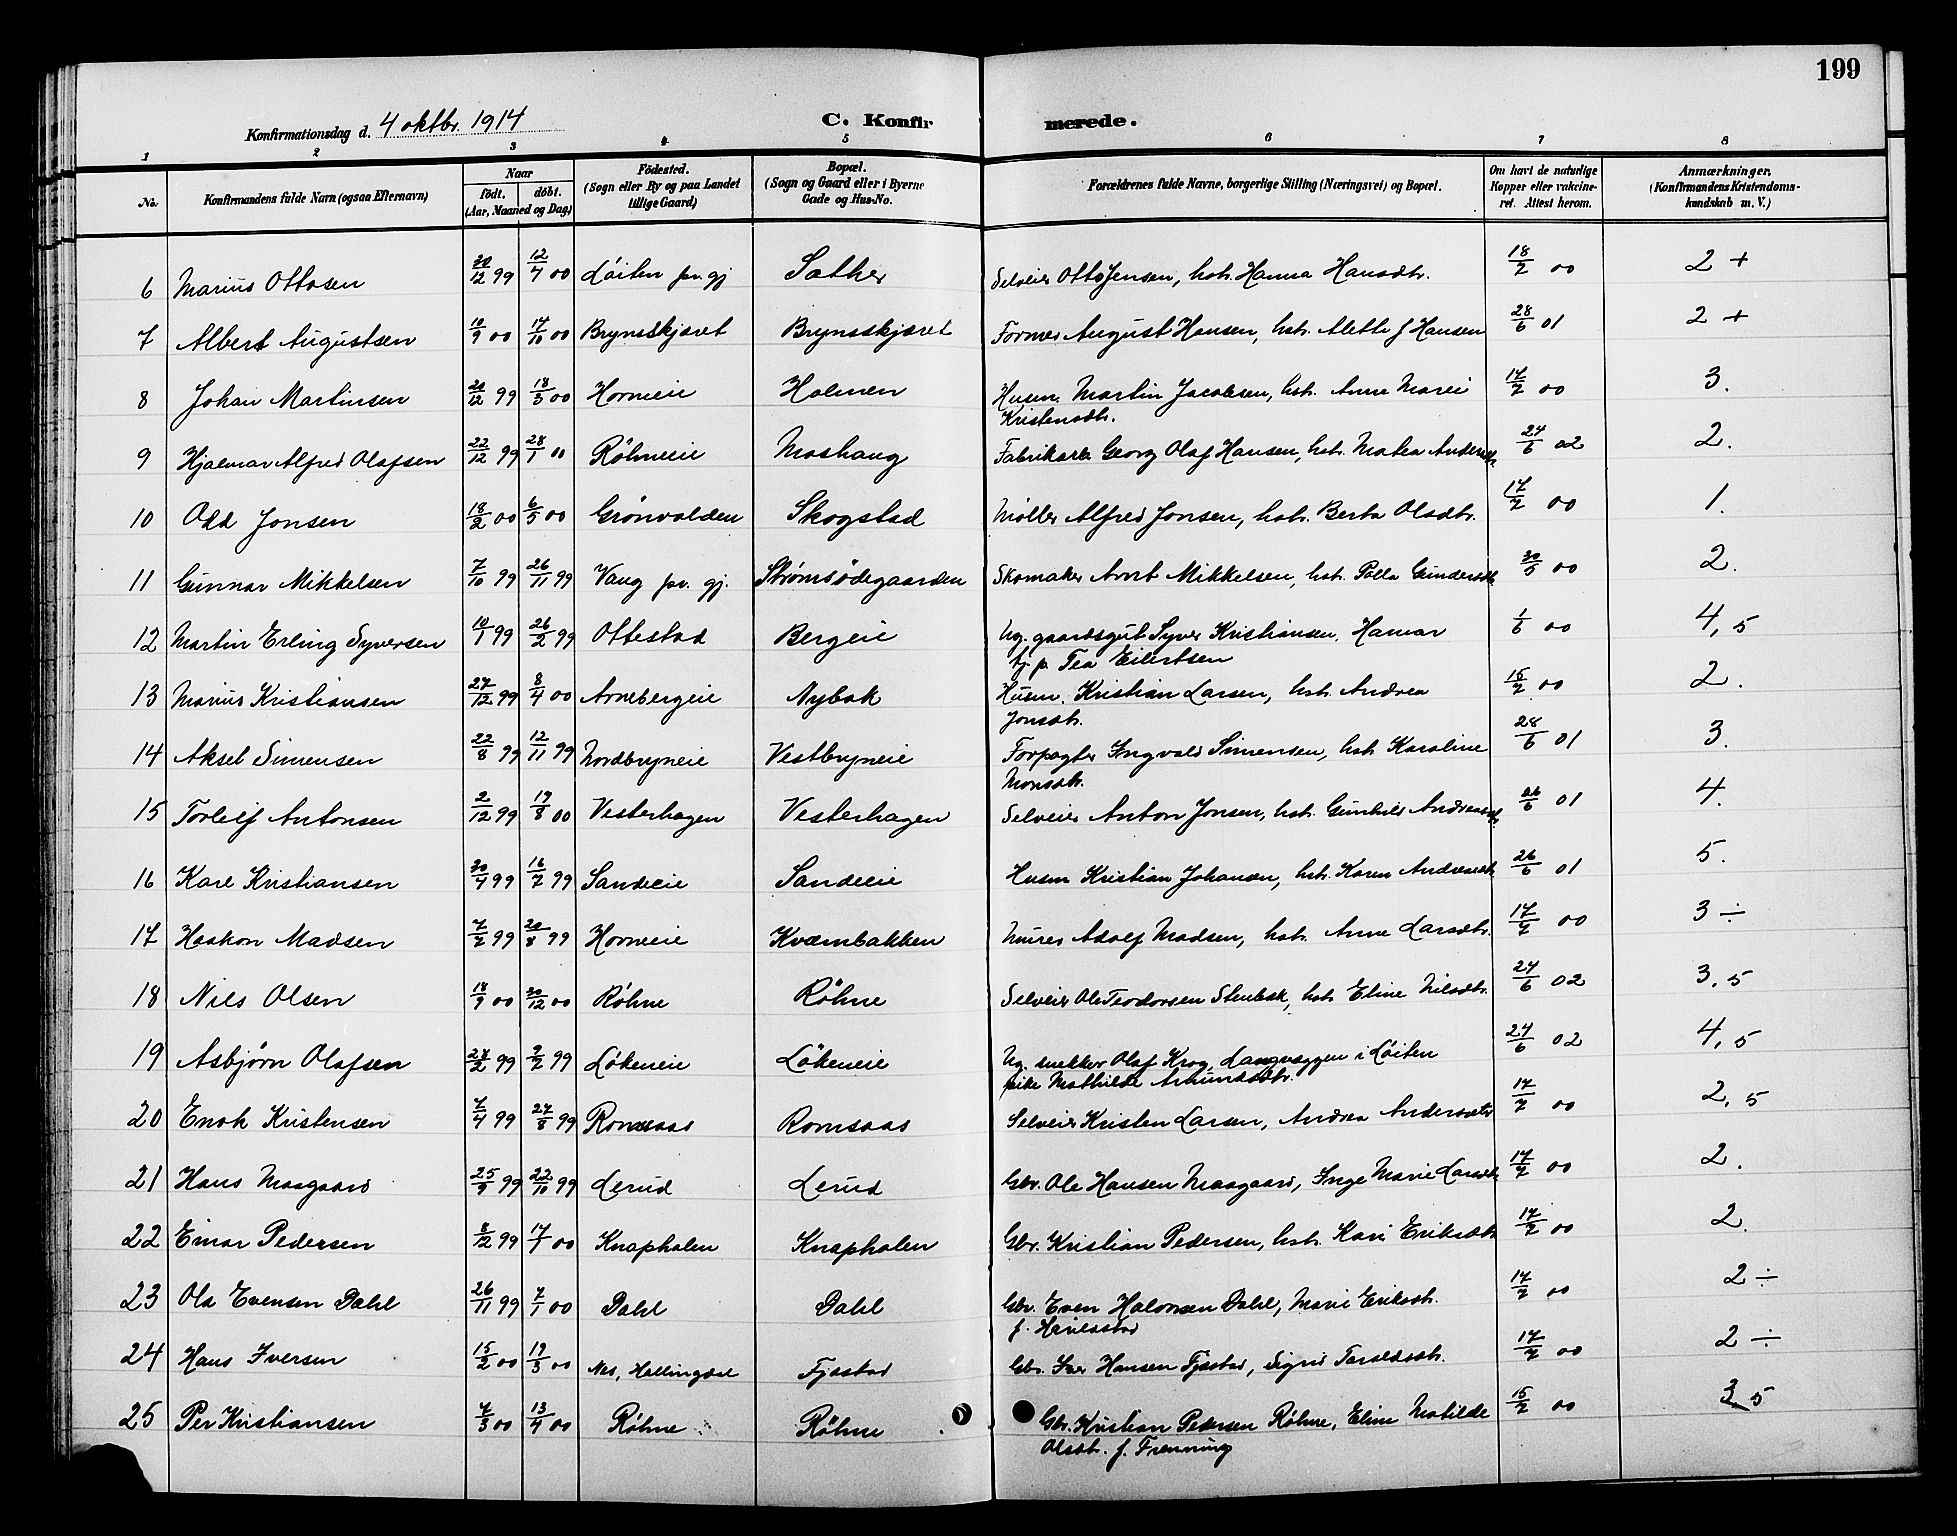 199
Konfirmationsdag d. 4 oktbr. 1914
C. Konfirmerede.
1 2 3 4 5 6 7 8
No.
Konfirmandens fulde Navn (ogsaa Efternavn)
Naar
født. døbt.
(Aar, Maaned og Dag)
Födested.
(Sogn eller By og paa Landet
tillige Gaard)
Bopæl.
(Sogn og Gaard eller i Byerne
Gade og Hus-No.
Forældrenes fulde Navne, borgerlige Stilling (Næringsvei) og Bopæl.
Om havt de naturlige
Kopper eller vakcine-
ret. Attest herom.
Anmærkninger.
(Konfirmandens Kristendoms-
kundskab m. V.)
6 Marius Ottosen 30/12 99 12/4 00 Löiten pr. gj Sæther Selveier Otto Jensen, hstr. Hanna Hansdtr. 18/7 00 2 +
7 Albert Augustsen 10/9 00 14/10 00 Brynsskjæret Brynsskjæret Former August Hansen, hstr. Alette f Hansen 28/6 01 2 +
8 Johan Martinsen 20/12 99 18/3 00 Horneie Holmen Husm. Martin Jacobsen, hstr. Anne Marie
Kristensdtr. 17/7 00 3.
9 Hjalmar Alfred Olafsen 22/12 99 28/1 00 Röhneeie Moshaug Fabrikarb. Georg Olaf Hansen, hstr. Matea Andersdtr. 24/6 02 2.
10 Odd Jonsen 18/2 00 6/5 00 Grönvolden Skogstad Møller Alfred Jonsen, hstr. Berta Olsdtr. 17/7 00 1.
11 Gunnar Mikkelsen 7/10 99 26/11 99 Vang pr. gj. Strømsödegaarden Skomaker Arnt Mikkelsen, hstr. Palla Gundersdtr. 30/5 00 2.
12 Martin Erling Syversen 10/1 99 26/2 99 Ottestad Bergeie Ug. gaardsgut Syver Kristiansen, Hamar
tj. p. Tea Eilertsen 1/6 00 4,5
13 Marius Kristiansen 27/12 99 8/4 00 Arnebergeie Nybak Husm. Kristian Larsen, hstr. Andrea
Jonsdtr. 15/7 00 2.
14 Aksel Simensen 22/8 99 12/11 99 Nordbryneie Vestbryneie Forpagter Ingvald Simensen, hstr. Karoline
Monsdtr. 28/6 01 3.
15 Torleif Antonsen 2/12 99 19/8 00 Vesterhagen Vesterhagen Selveier Anton Jonsen, hstr. Gunhild Andreasdtr. 26/6 01 4.
16 Karl Kristiansen 30/4 99 16/7 99 Sandeeie Sandeeie Husm Kristian Johansen, hstr. Karen Andreasdtr. 26/6 01 5.
17 Haakon Madsen 7/7 99 20/8 99 Horneie Kværnbakken Murer Adolf Madsen, hstr. Anne Larsdtr. 17/7 00 3 ÷
18 Nils Olsen 18/9 00 30/12 00 Röhne Röhne Selveier Ole Teodorsen Stenbak, hstr. Eline Nilsdtr. 24/6 02 3,5
19 Asbjørn Olafsen 24/2 99 9/7 99 Lökeneie Lökeneie Ug. snekker Olaf Krog, Langvæggen i Löiten
pike Mathilde Amundsdtr. 24/6 02 4,5
20 Enok Kristensen 7/4 99 27/8 99 Romsaas Romsaas Selveier Kristen Larsen, Andrea Andersdtr 17/7 00 2,5
21 Hans Maagaard 25/9 99 22/10 99 Lerud Lerud Gbr. Ole Hansen Maagaard, Inge Marie Larsdtr. 17/7 00 2.
22 Einar Pedersen 8/12 99 17/7 00 Knapholen Knapholen Gbr. Kristian Pedersen, hstr. Kari Eriksdtr 17/7 00 2.
23 Ola Evensen Dahl 26/11 99 7/1 00 Dahl Dahl Gbr. Even Halvorsen Dahl, Marie Eriksdtr.
17/7 00 2 ÷
24 Hans Iversen 15/2 00 19/3 00 Nes, Hallingdal Fjæstad Gbr. Iver Hansen Fjæstad, Sigrid Taraldsdtr. 17/7 00 2 ÷
25 Per Kristiansen 7/3 00 13/4 00 Röhne Röhne Gbr. Kristian Pedersen Röhne, Eline Matilde
Olsdtr. f. Frenning 15/7 00 3,5